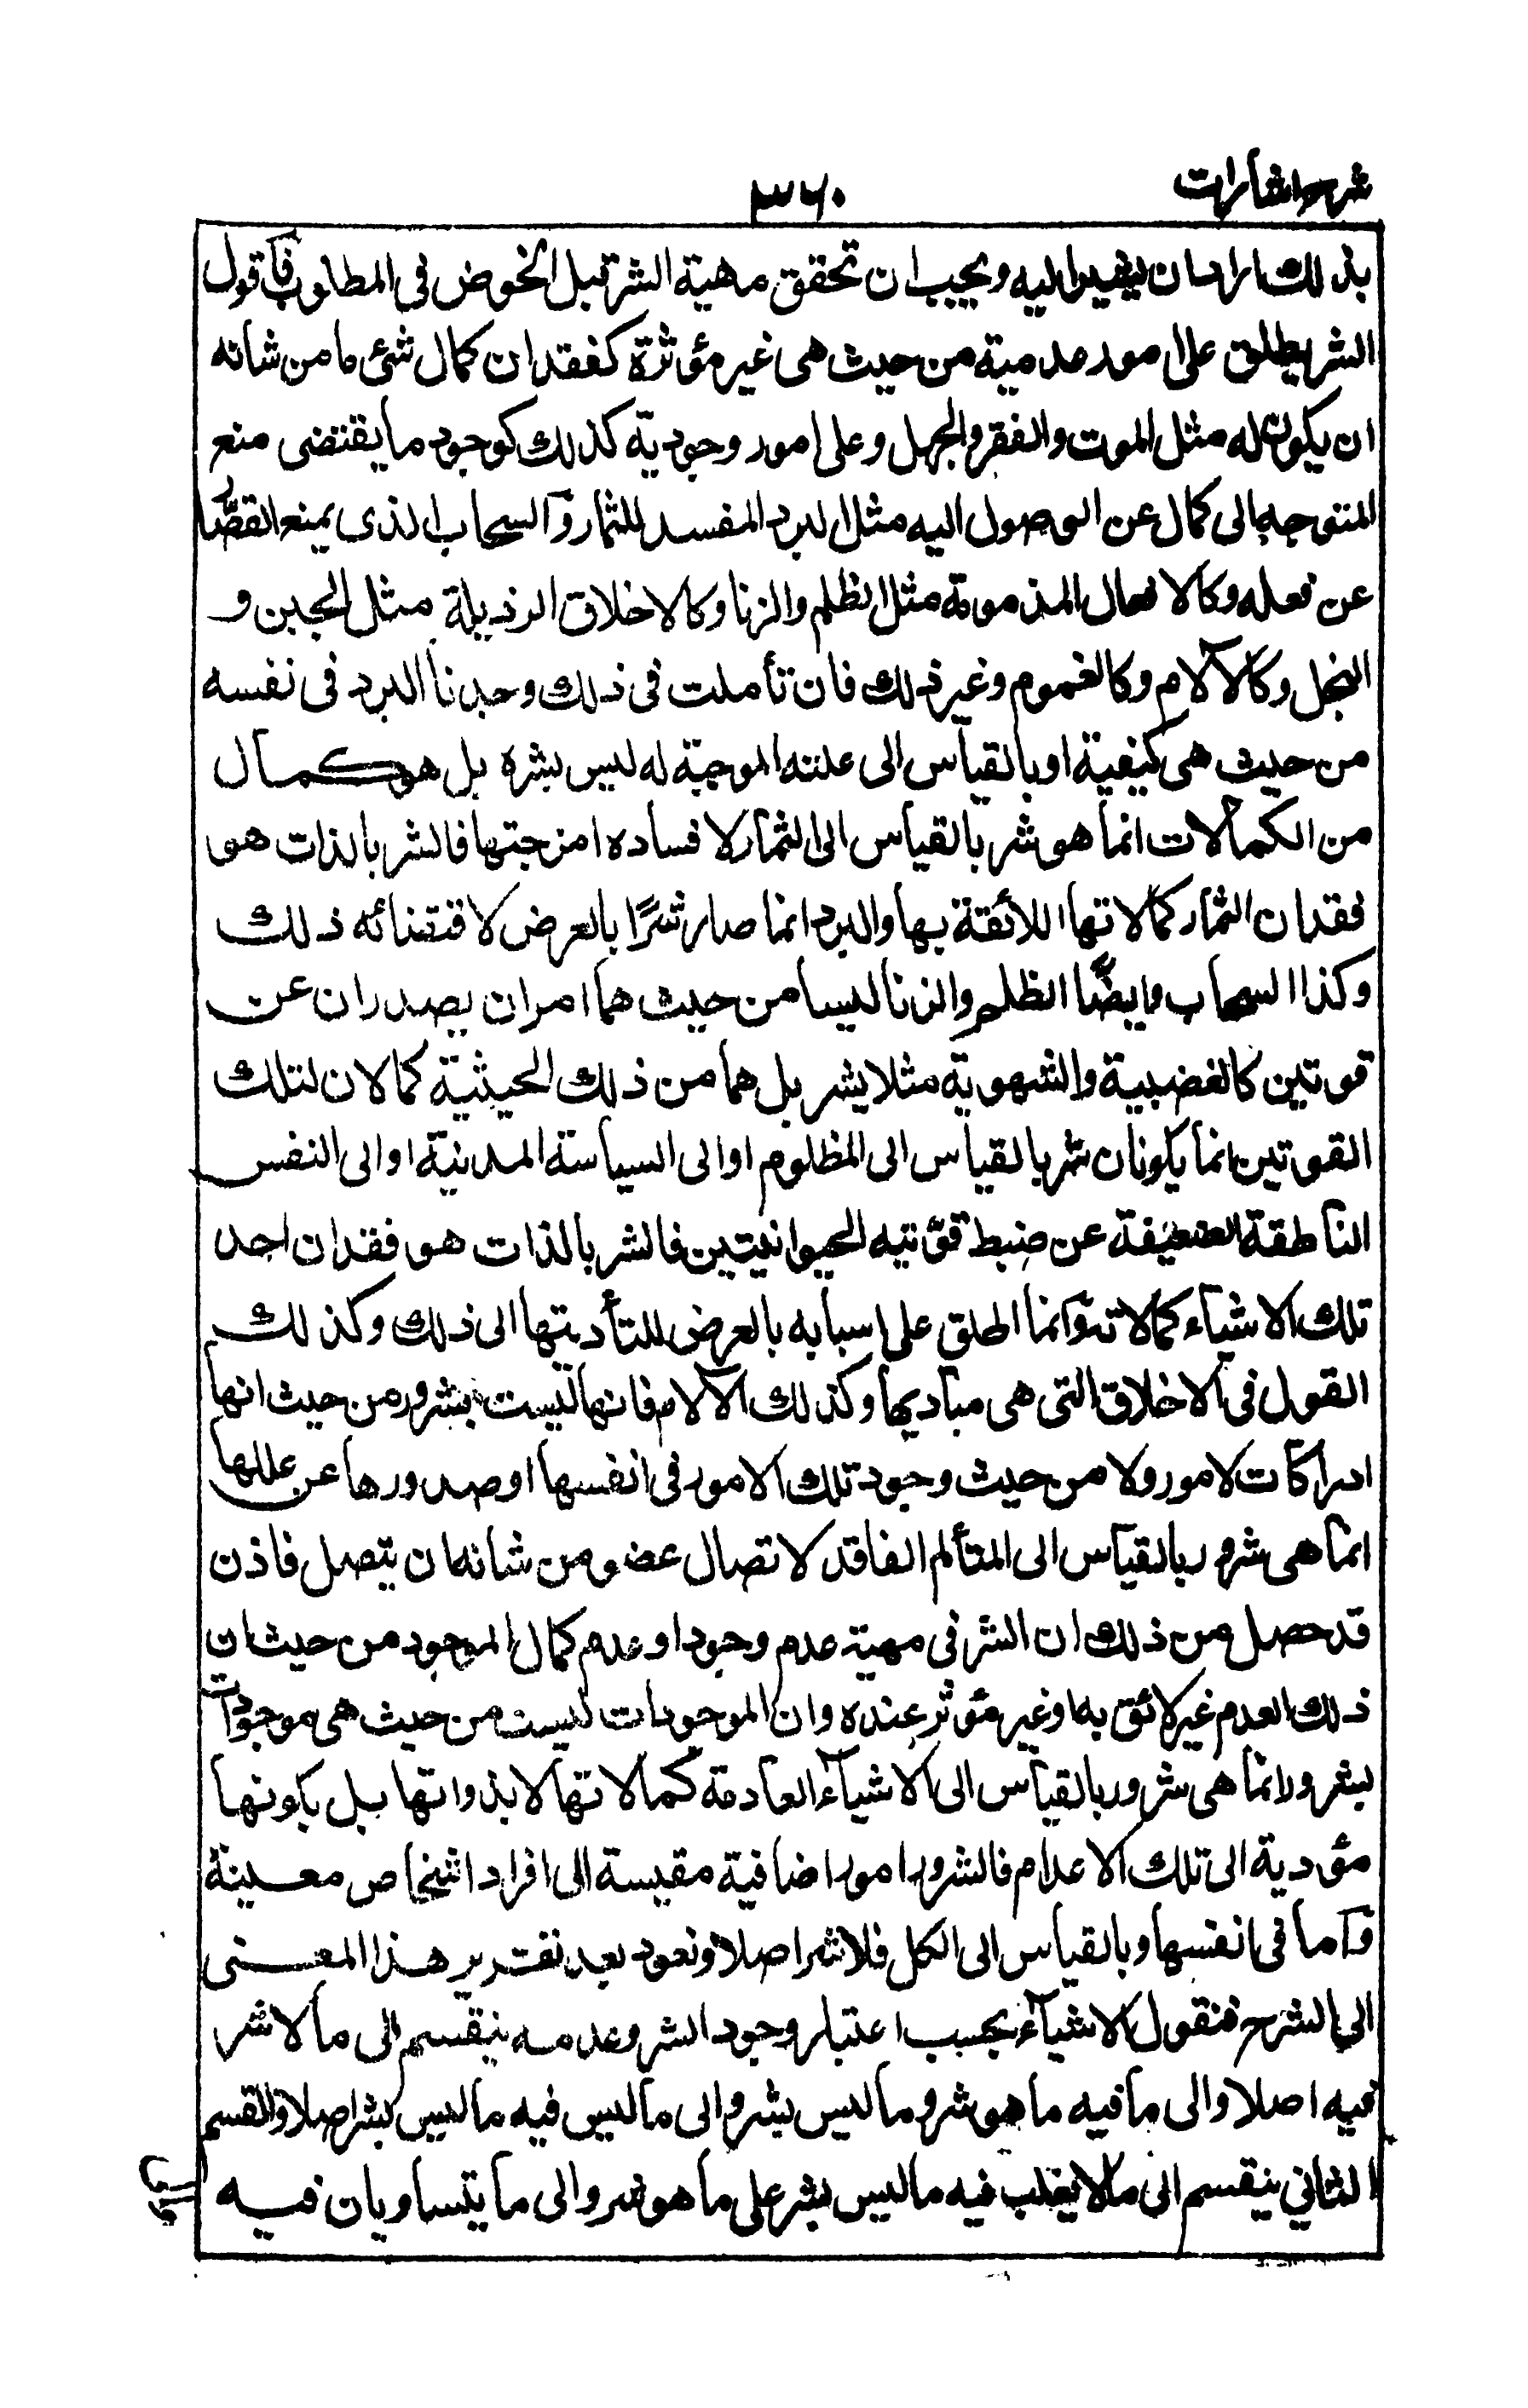 شرح اشارات
٣٦٠
بذلك اراد ان يشير اليه ويجب ان تحقق مهية الشر قبل الخوض فى المطلوب فاقول
الشر يطلق على امور عدمية من حيث هى غير مؤثرة كفقدان كمال شئ ما من شانه
ان يكون له مثل الموت والفقر والجهل وعلى امور وجودية كذلك كوجود ما يقتضى منع
المتوجه الى كمال عن الوصول اليه مثل البرد المفسد للثمار والسحاب الذى يمنع القصّار
عن فعله وكالافعال المذمومة مثل الظلم والزنا وكالاخلاق الرذيلة مثل الجبن و
البخل وكالآلام وكالغموم وغير ذلك فان تأملت فى ذلك وجدنا البرد فى نفسه
من حيث هى كيفية او بالقياس الى علته الموجبة له ليس بشره بل هو كمال
من الكمالات انما هو شر بالقياس الى الثمار لافساده امزجتها فالشر بالذات هو
فقدان الثمار كمالاتها اللائقة بها والبرد انما صار شرًا بالعرض لاقتضائه ذلك
وكذا السحاب وايضًا الظلم والزنا ليسا من حيث هما امران يصدران عن
قوتين كالغضبية والشهوية مثلا بشر بل هما من ذلك الحيثية كمالان لتلك
القوتين انما يكونان شر بالقياس الى المظلوم او الى السياسة المدنية او الى النفس
الناطقة الضعيفة عن ضبط قوّتيه الحيوانيتين فالشر بالذات هو فقدان احد
تلك الاشياء كمالاته وانما اطلق على اسبابه بالعرض للتأديتها الى ذلك وكذلك
القول فى الاخلاق التى هى مباديها وكذلك الآلام فانها ليست بشرور من حيث انها
ادراكات لامور ولا من حيث وجود تلك الامور فى انفسها او صدورها عن عللها
انما هى شرور بالقياس الى المتألم الفاقد لاتصال عضو من شانه ان يتصل فاذن
قد حصل من ذلك ان الشر فى مهية عدم وجود او عدم كمال الموجود من حيث ان
ذلك العدم غير لائق به او غير مؤثر عنده وان الموجودات ليست من حيث هى موجودات
بشرور انما هى شرور بالقياس الى الاشياء العادمة كمالاتها لا بذواتها بل بكونها
مؤدية الى تلك الاعدام فالشرور امور اضافية مقيسة الى افراد اشخاص معينة
واما فى انفسها وبالقياس الى الكل فلا شر اصلا ونعود بعد تقرير هذا المعنى
الى الشرح فنقول الاشياء بحسب اعتبار وجود الشر وعدمه ينقسم الى ما لا شر
فيه اصلا والى ما فيه ما هو شر وما ليس بشر والى ما ليس فيه ما ليس بشر اصلا والقسم
الثانى ينقسم الى ما لا يغلب فيه ما ليس بشر على ما هو شر والى ما يتساويان فيه